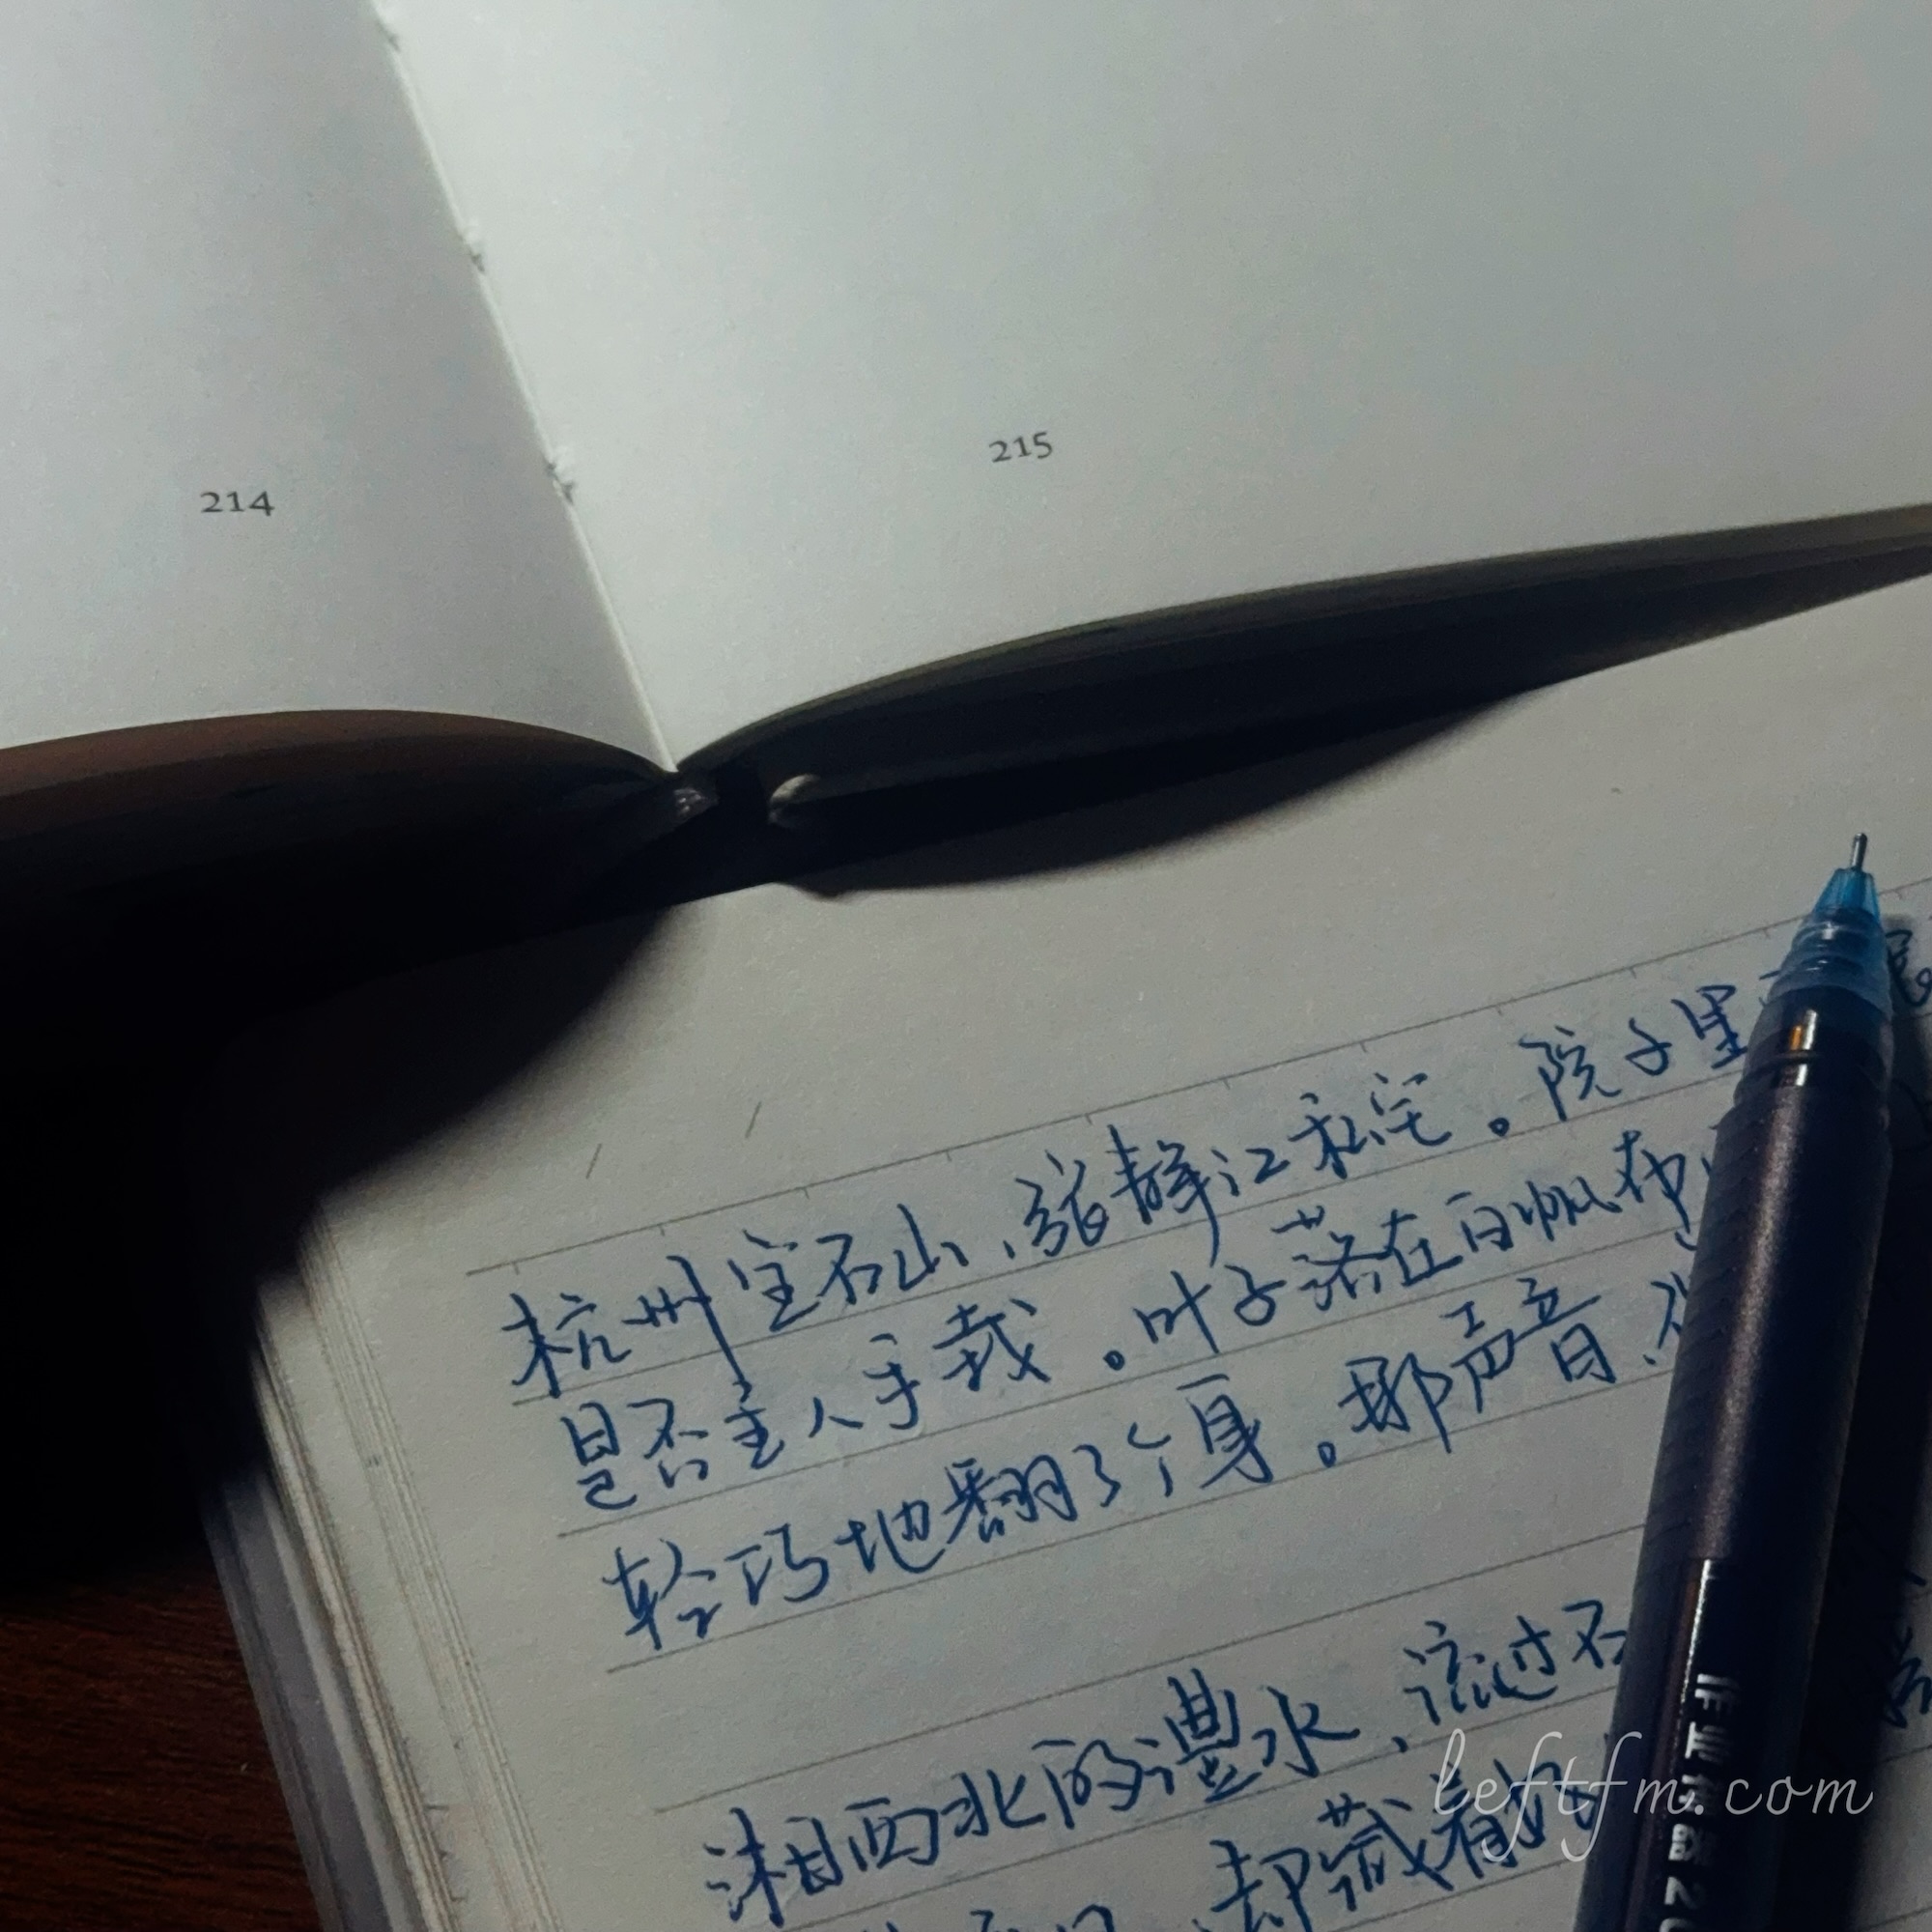 214
215
杭州宝石山、张静江私宅。院子里
是否主人手栽。叶子落在白帆布
轻巧地翻了个身。那声音、
湘西北的澧水、流过不
却藏着
leftfm.com